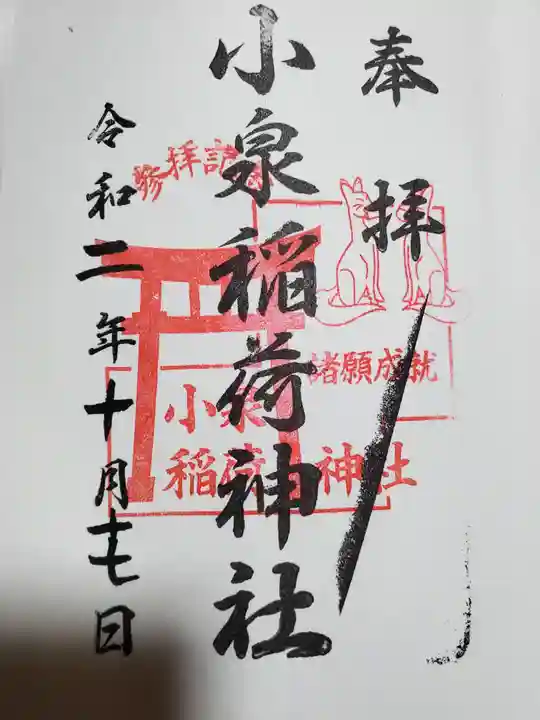 奉拝
小泉稲荷神社
令和二年十月十七日
参拝記念
諸願成就
小泉
稲荷神社